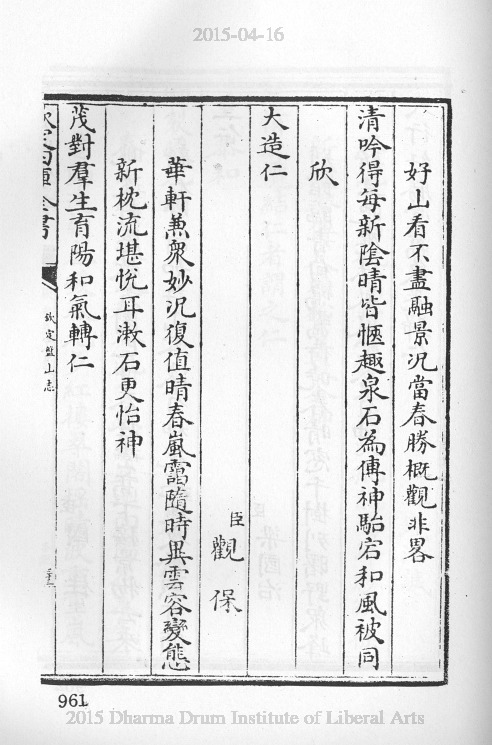 2015-04-16
好山看不盡融景況當春勝概觀非畧
清吟得每新陰晴皆愜趣泉石為傳神駘宕和風被同
欣
大造仁
臣觀保
華軒兼衆妙況復值晴春嵐靄隨時異雲容變態
新枕流堪悅耳漱石更怡神
茂對羣生育陽和氣轉仁
欽定四庫全書
欽定盤山志
961
2015 Dharma Drum Institute of Liberal Arts